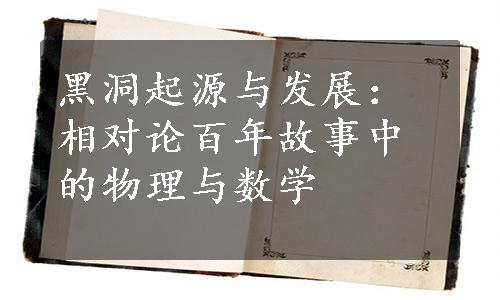 黑洞起源与发展：
相对论百年故事中
的物理与数学